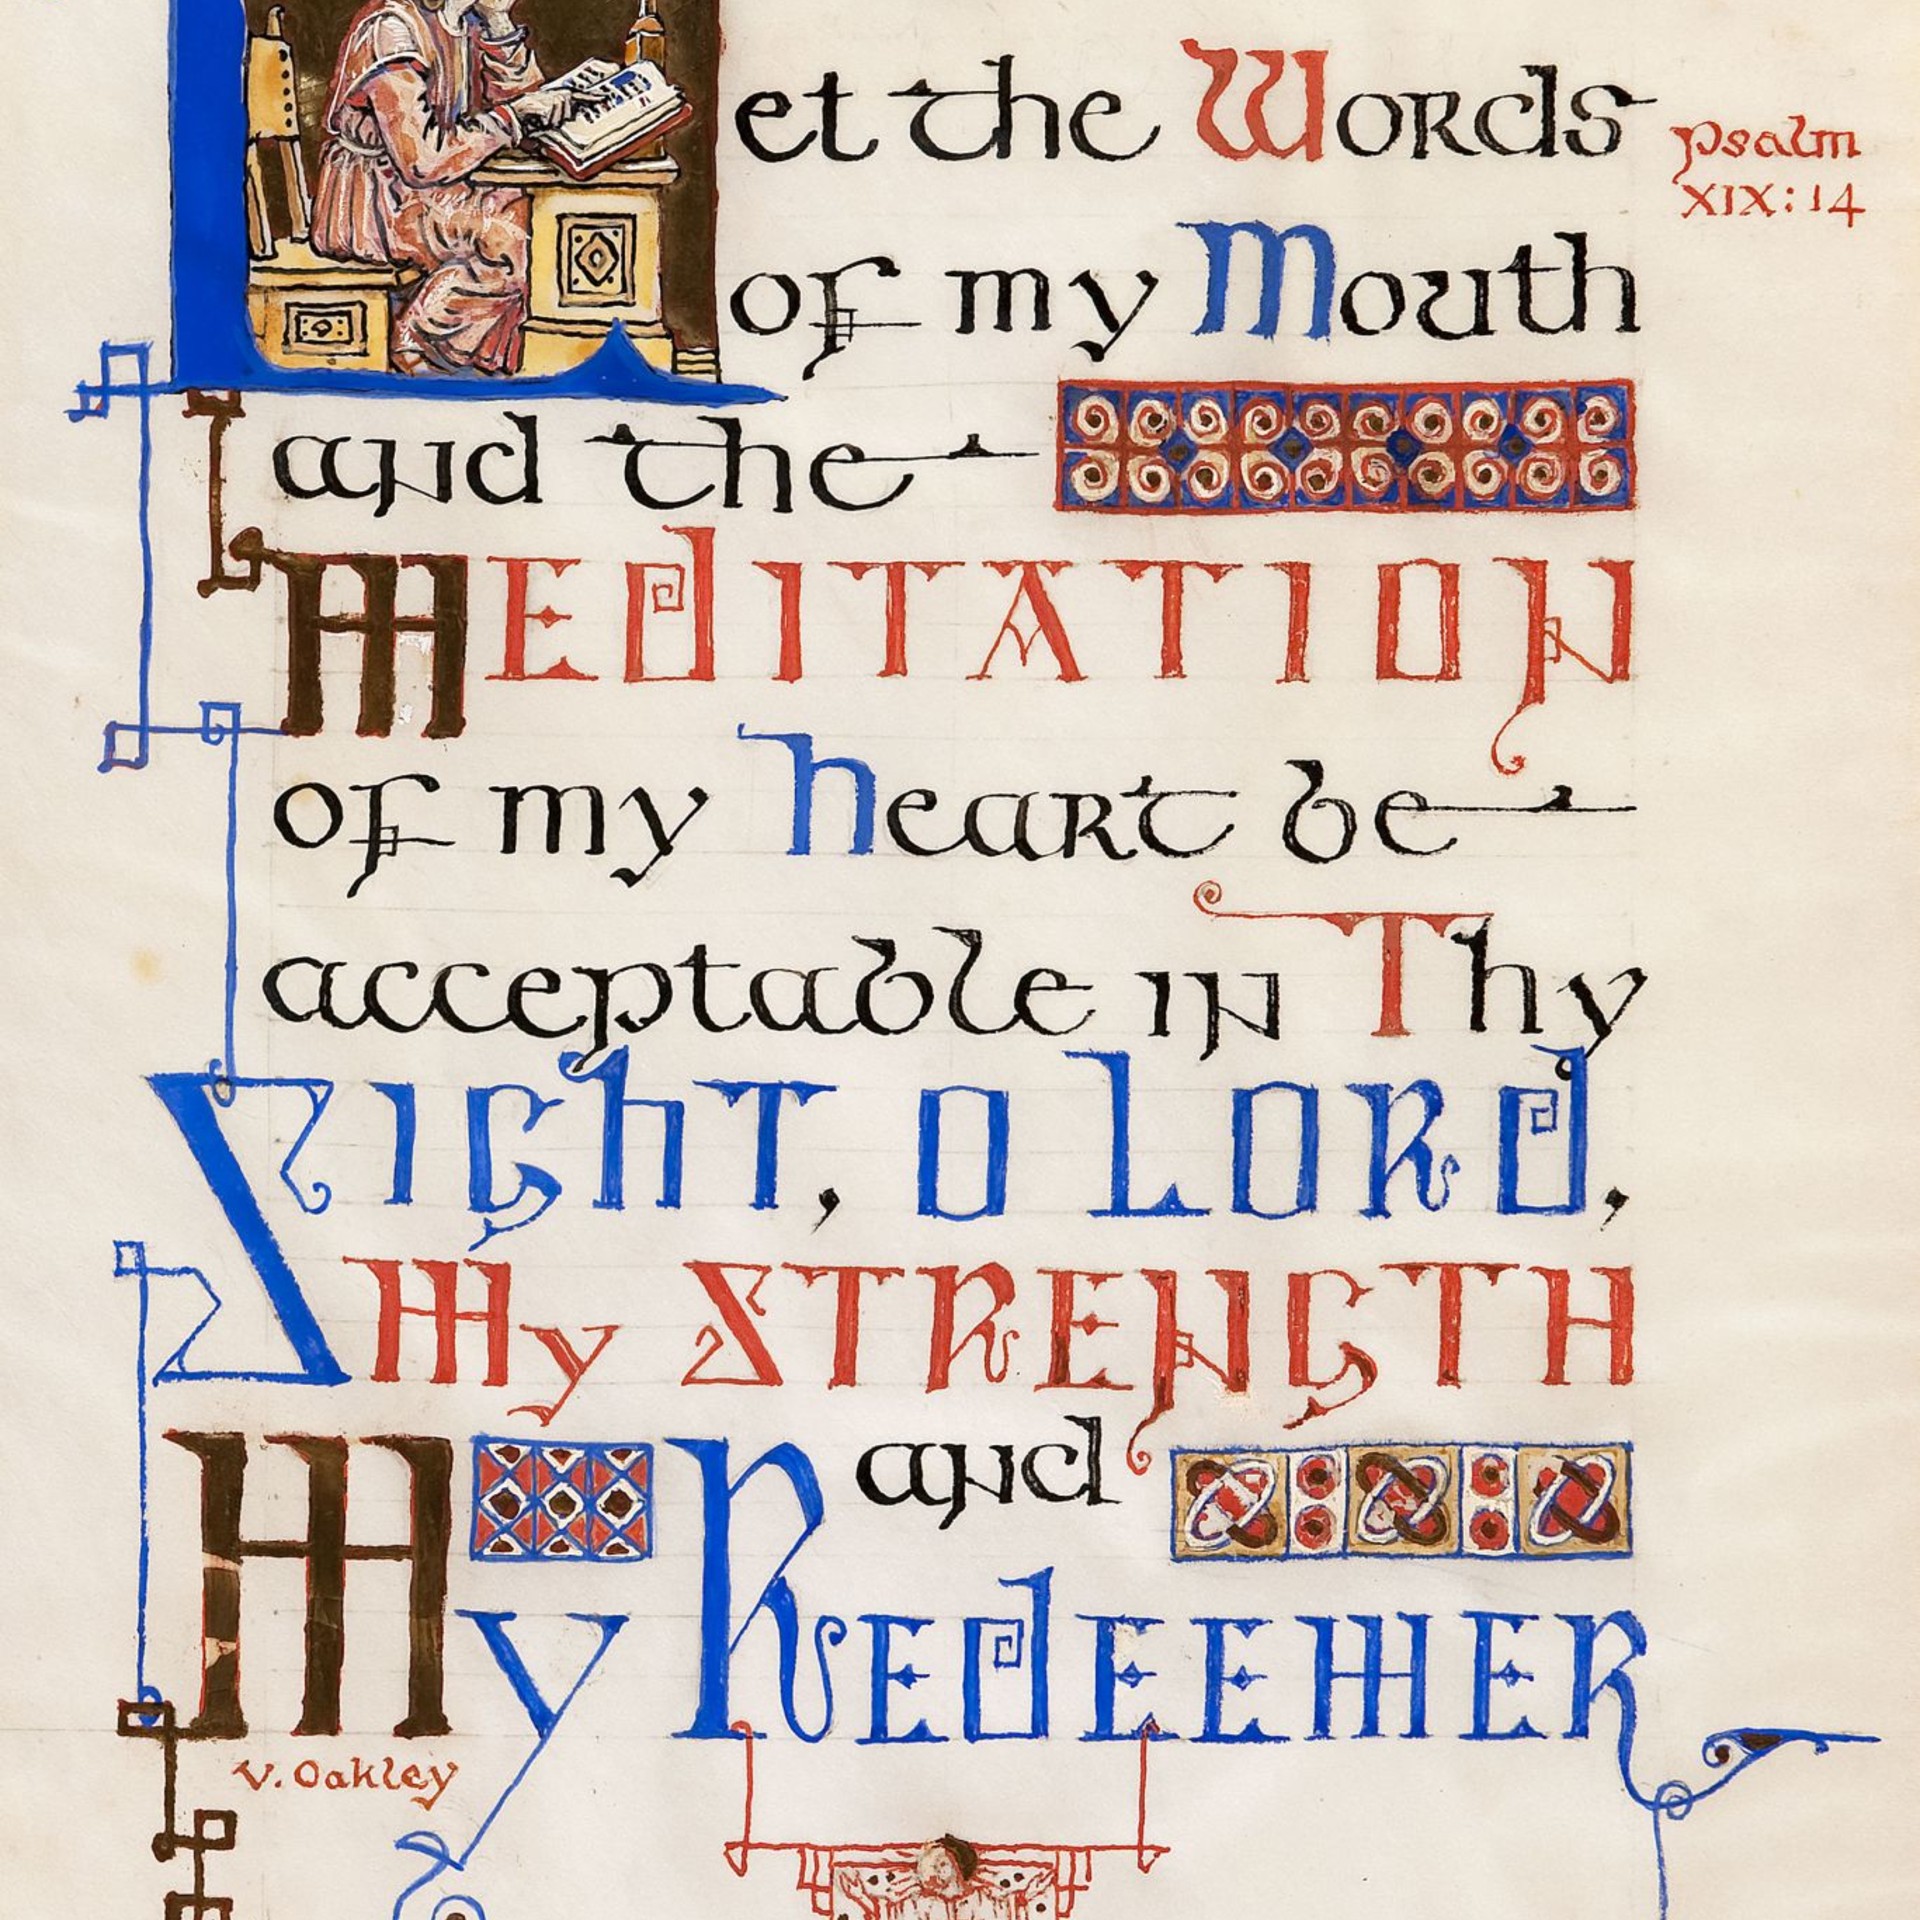 Let the Words
Psalm
XIX:14
of my Mouth
and the
MEDITATION
of my heart be
acceptable in Thy
SIGHT, O LORD,
My STRENGTH
and
My REDEEMER
V. Oakley